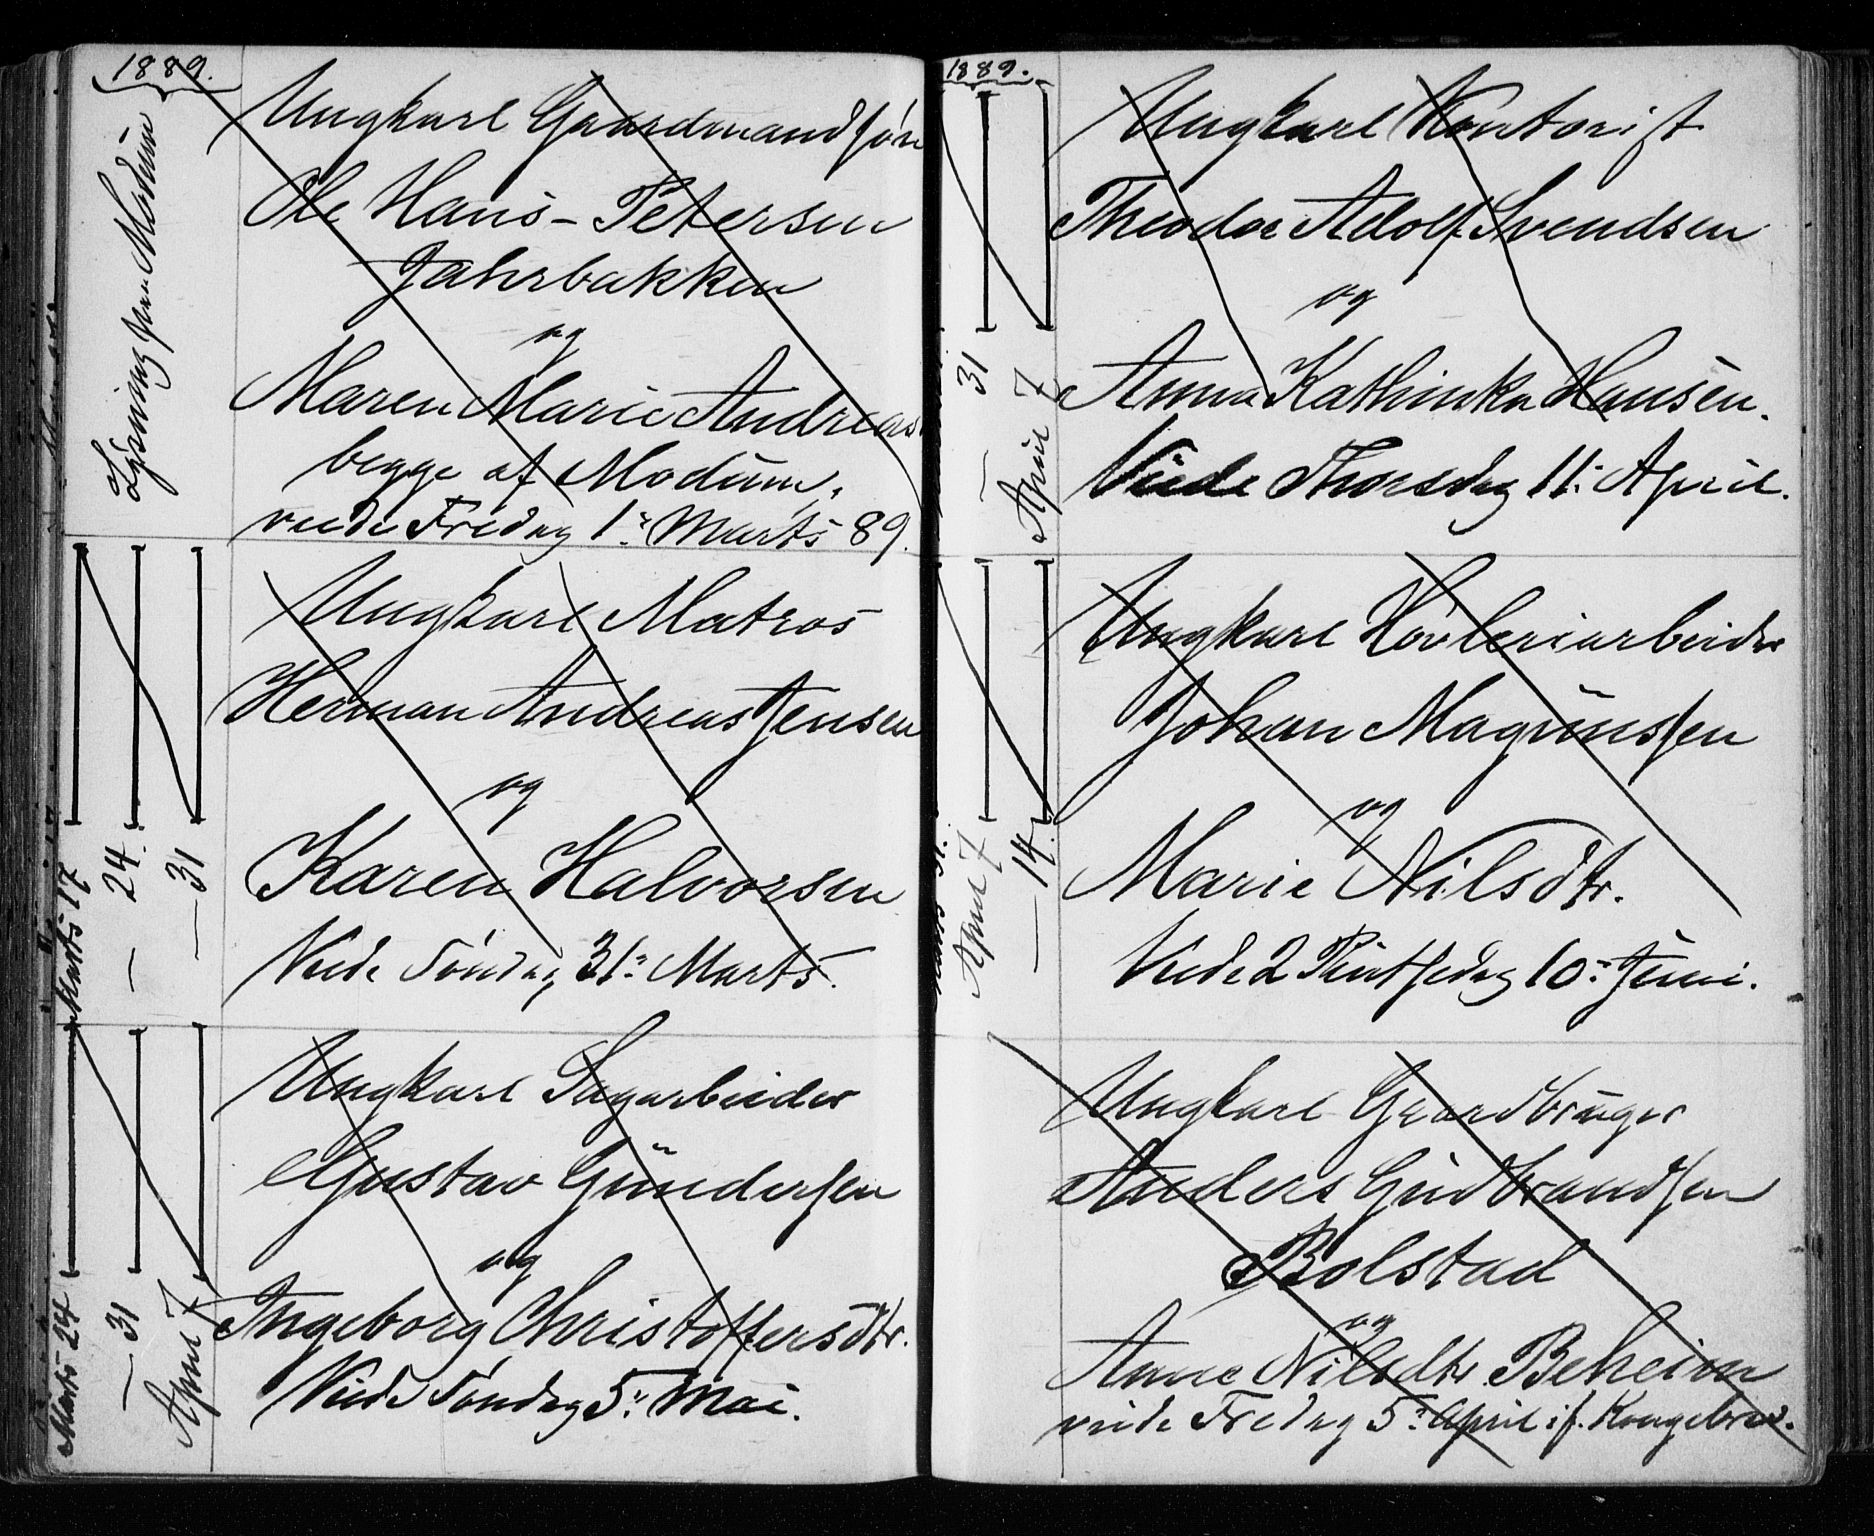 1889.
Lysning fra Modum
Ungkarl Gaardmandssøn
Ole Hans-Petersen
Jahrbakken
og
Maren Marie Andreas
begge af Modum,
viede Fredag 1: Marts 89.
Marts 17
— 24.
— 31
Ungkarl Matros
Herman Andreas Jensen
og
Karen Halvorsen
Viede Søndag 31: Marts.
Marts 24
— 31
April 7
Ungkarl Sagarbeider
Gustav Gundersen
og
Ingeborg Christoffersdtr.
Viede Søndag 5: Mai.
1889.
Marts 24.
— 31
April 7
Ungkarl Kontorist
Theodor Adolf Svendsen
og
Anna Kathinka Hansen.
Viede Thorsdag 11: April.
Marts 31.
April 7
— 14.
Ungkarl Høvleriarbeider
Johan Magnussen
og
Marie Nilsdtr.
Viede 2 Pintsedag 10: Juni.
Ungkarl Gaardbruger
Anders Gudbrandsen
Bolstad
og
Anne Nilsdtr. Beheim
viede Fredag 5: April if. Kongebrev.